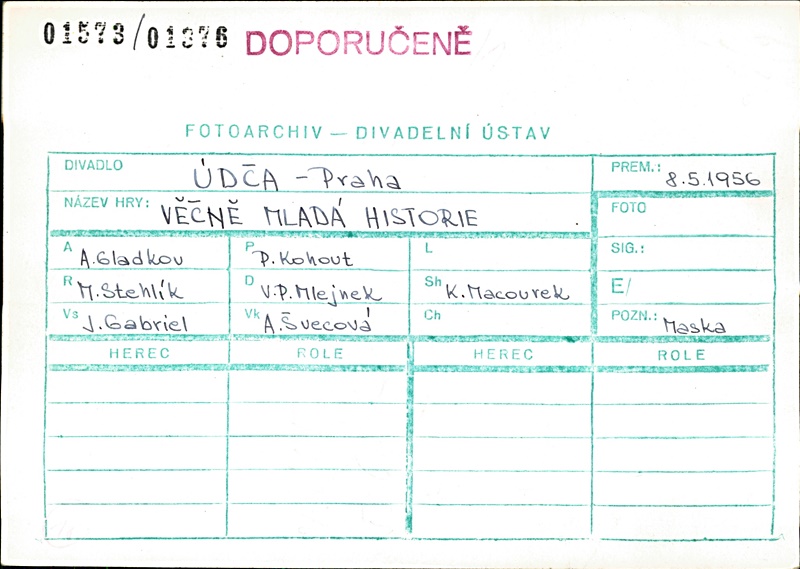 01573/01376 DOPORUČENĚ
FOTOARCHIV — DIVADELNÍ ÚSTAV
DIVADLO ÚDČA - Praha PREM.: 8.5.1956
NÁZEV HRY: VĚČNĚ MLADÁ HISTORIE FOTO
A A. Gladkov P P. Kohout L SIG.:
R M. Stehlík D V.P. Mlejnek Sh K. Macourek E/
Vs J. Gabriel Vk A. Švecová Ch POZN.: Maska
HEREC ROLE HEREC ROLE